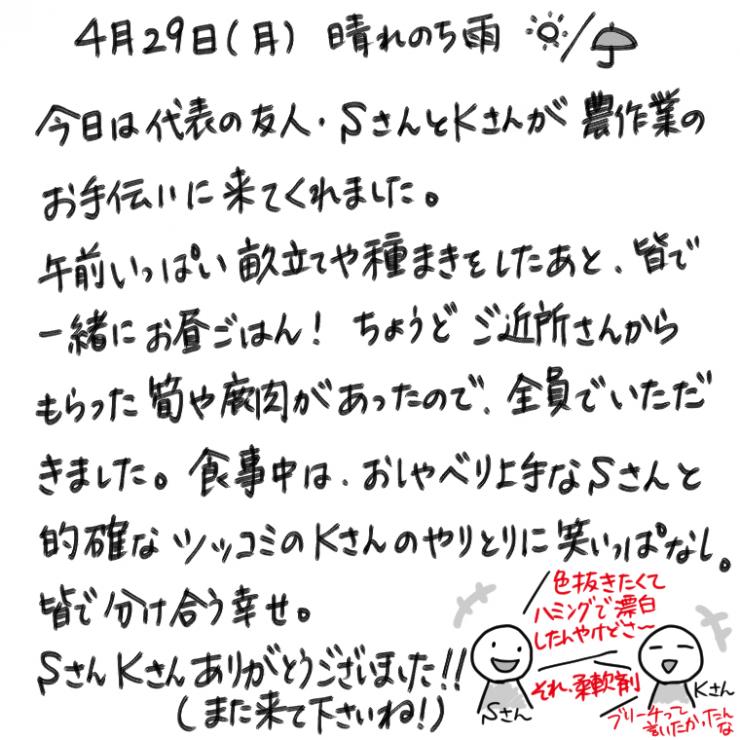 4月29日(月) 晴れのち雨
今日は代表の友人・SさんとKさんが農作業の
お手伝いに来てくれました。
午前いっぱい畝立てや種まきをしたあと、皆で
一緒にお昼ごはん！ちょうどご近所さんから
もらった筍や鹿肉があったので、全員でいただ
きました。食事中は、おしゃべり上手なSさんと
的確なツッコミのKさんのやりとりに笑いっぱなし。
皆で分け合う幸せ。
SさんKさんありがとうございました!!
(また来て下さいね!)
色抜きたくて
ハミングで漂白
したんやけどさ〜
それ、柔軟剤
Sさん
Kさん
ブリーチって
言いたかったん
な